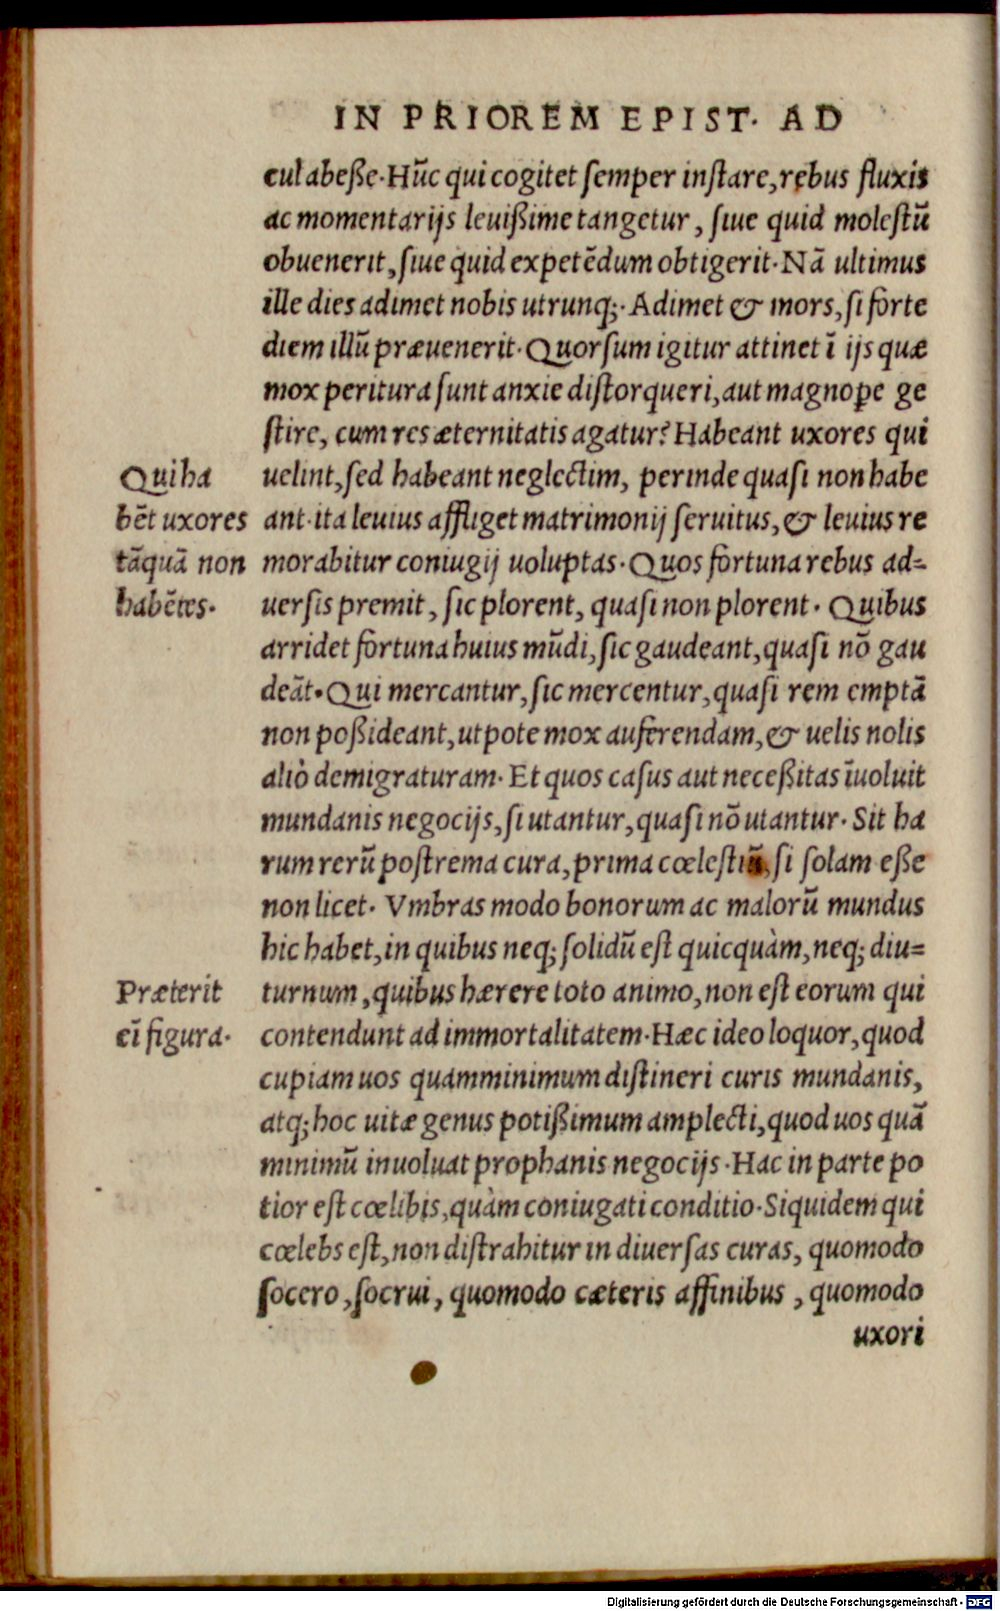 IN PRIOREM EPIST. AD
cul abeße. Hūc qui cogitet semper instare, rebus fluxis
ac momentarijs leuißime tangetur, siue quid molestū
obuenerit, siue quid expetēdum obtigerit. Nā ultimus
ille dies adimet nobis utrunq;. Adimet & mors, si forte
diem illū præuenerit. Quorsum igitur attinet ī ijs quæ
mox peritura sunt anxie distorqueri, aut magnope ge
stire, cum res æternitatis agatur? Habeant uxores qui
uelint, sed habeant neglectim, perinde quasi non habe
ant. ita leuius affliget matrimonij seruitus, & leuius re
morabitur coniugij uoluptas. Quos fortuna rebus ad=
uersis premit, sic plorent, quasi non plorent. Quibus
arridet fortuna huius mūdi, sic gaudeant, quasi nō gau
deāt. Qui mercantur, sic mercentur, quasi rem emptā
non poßideant, utpote mox auferendam, & uelis nolis
aliò demigraturam. Et quos casus aut neceßitas īuoluit
mundanis negocijs, si utantur, quasi nō utantur. Sit ha
rum rerū postrema cura, prima cœlestiū, si solam eße
non licet. Vmbras modo bonorum ac malorū mundus
hic habet, in quibus neq; solidū est quicquàm, neq; diu=
turnum, quibus hærere toto animo, non est eorum qui
contendunt ad immortalitatem. Hæc ideo loquor, quod
cupiam uos quamminimum distineri curis mundanis,
atq; hoc uitæ genus potißimum amplecti, quod uos quā
minimū inuoluat prophanis negocijs. Hac in parte po
tior est cœlibis, quàm coniugati conditio. Siquidem qui
cœlebs est, non distrahitur in diuersas curas, quomodo
socero, socrui, quomodo cæteris affinibus, quomodo
uxori
Qui ha
bēt uxores
tāquā non
habētes.
Præterit
eī figura.
Digitalisierung gefördert durch die Deutsche Forschungsgemeinschaft - DFG